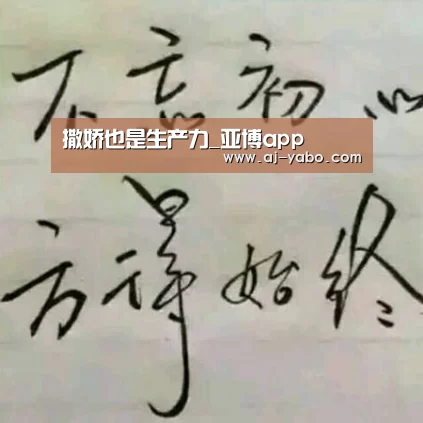 不忘初心
撒娇也是生产力_亚博app
www.aj-yabo.com
方得始终